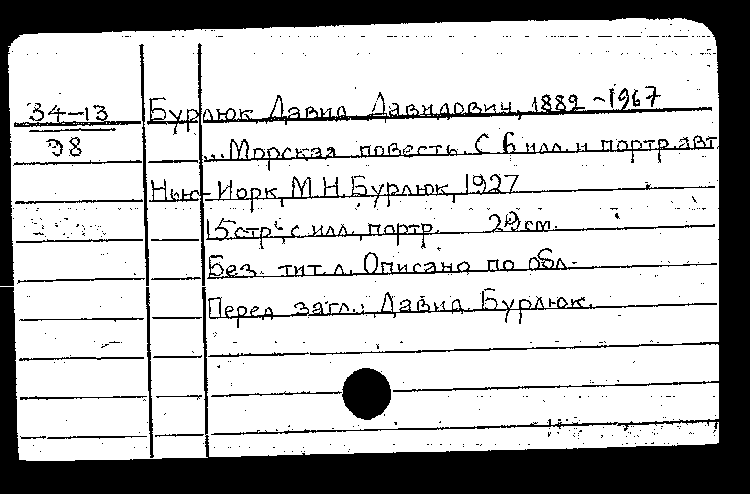 34-13 Бурлюк, Давид Давидович, 1882-1967
98 ...Морская повесть. С 6 илл. и портр. авт.
Нью-Иорк, М.Н. Бурлюк, 1927
15 стр. с илл., портр. 29 см.
Без. тит. л. Описано по обл.
Перед загл.: Давид Бурлюк.